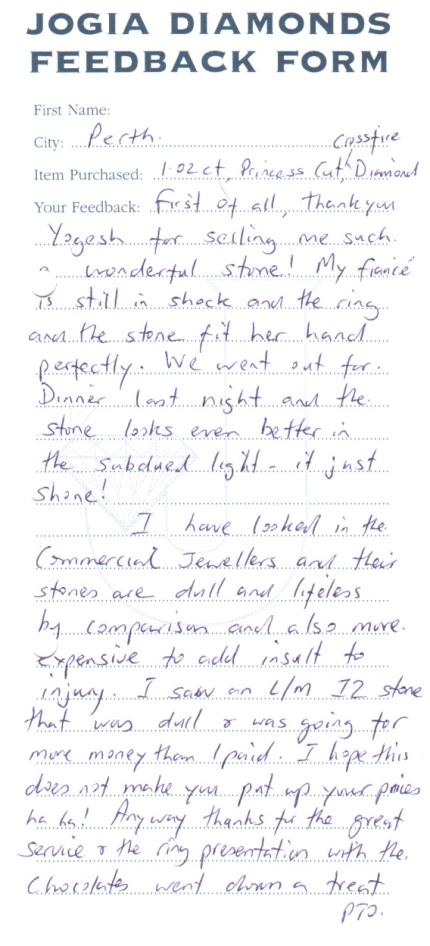 JOGIA DIAMONDS
FEEDBACK FORM
First Name:
City: Perth.
Crossfire
Item Purchased: 1.02ct, Princess Cut, Diamond
Your Feedback: First of all, thankyou
Yogesh for selling me such.
a wonderful stone! My fiancé
is still in shock and the ring
and the stone fit her hand
perfectly. We went out for.
Dinner last night and the.
stone looks even better in
the subdued light - it just
shone!
I have looked in the.
Commercial Jewellers and their
stones are dull and lifeless
by comparison and also more.
expensive to add insult to
injury. I saw an L/M I2 stone
that was dull & was going for
more money than I paid. I hope this
does not make you put up your prices
ha ha! Anyway thanks for the great
service & the ring presentation with the.
Chocolates went down a treat
PTO.